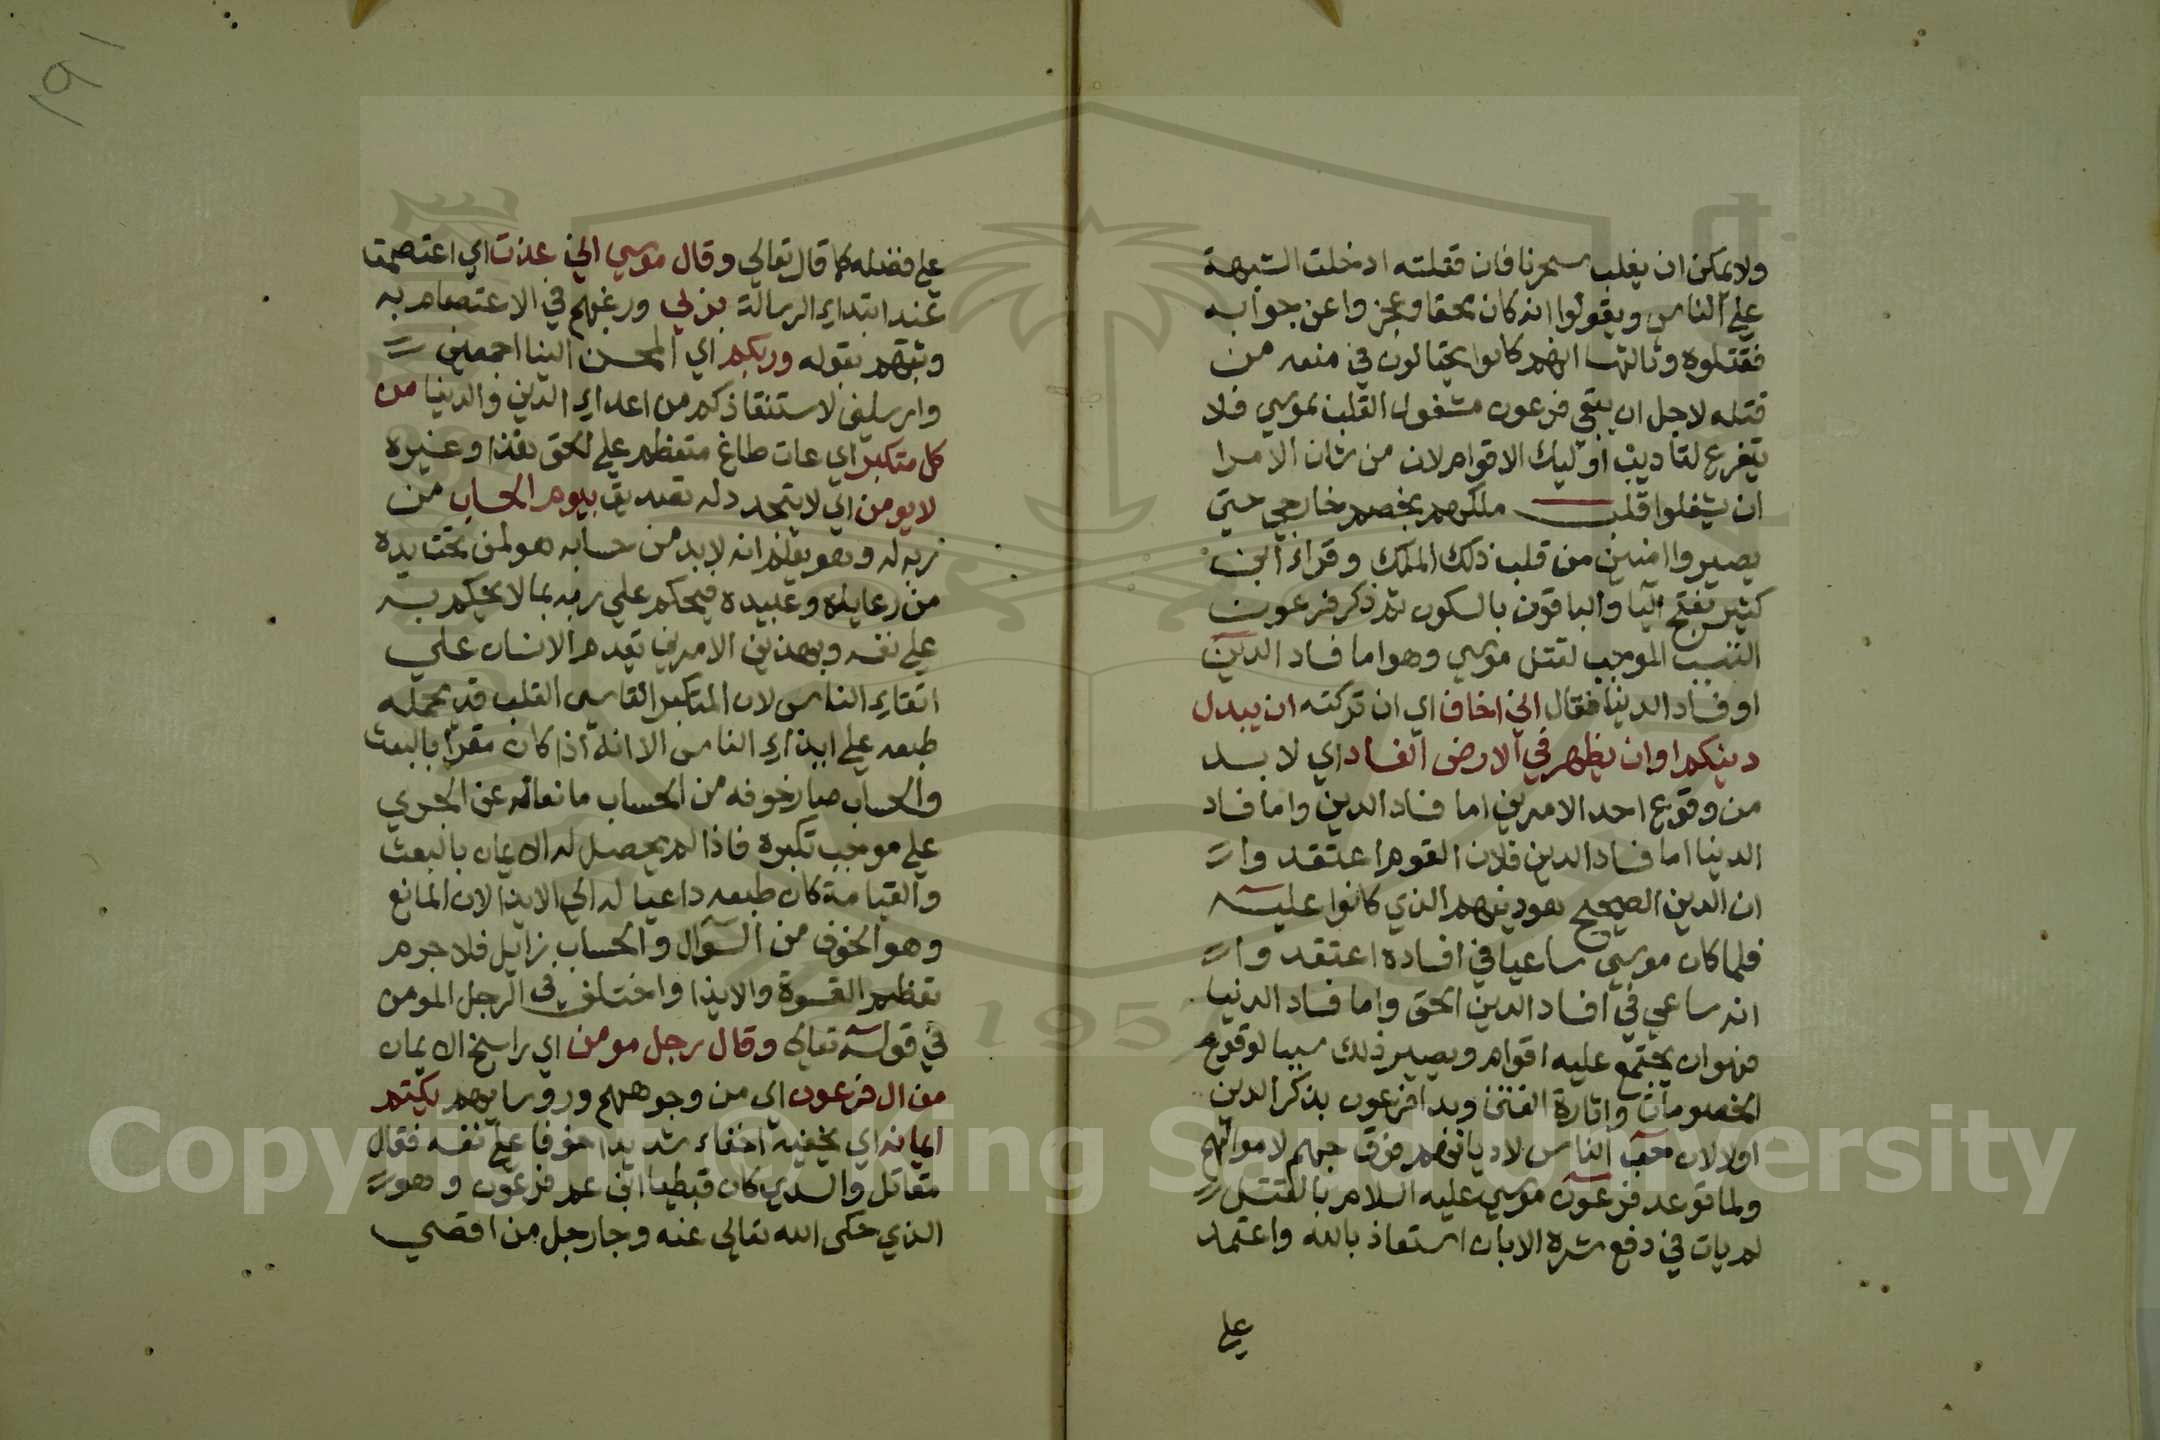 ولا يمكن ان يغلب سحرنا فان قتلته ادخلت الشبهة
علي الناس ويقولوا انه كان محقا وعجزوا عن جوابه
فقتلوه وثالثها انهم كانوا يحتالون في منعه من
قتله لاجل ان يبقي فرعون مشغول القلب بموسي فلا
يتفرغ لتاديب اوليك الاقوام لان من شان الامرا
ان يشغلوا قلب ملكهم بخصم خارجي حتي
يصيروا امنين من قلب ذلك الملك وقراء ابن
كثير بفتح اليا والباقون بالسكون ثم ذكر فرعون
السبب الموجب لقتل موسي وهو اما فساد الدين
او فساد الدنيا فقال اني اخاف اي ان تركته ان يبدل
دينكم او ان يظهر في الارض الفساد اي لا بد
من وقوع احد الامرين اما فساد الدين واما فساد
الدنيا اما فساد الدين فلان القوم اعتقدوا
ان الدين الصحيح هو دينهم الذي كانوا عليه
فلما كان موسي ساعيا في افساده اعتقدوا
انه ساعي في افساد الدين الحق واما فساد الدنيا
فهو ان يجتمع عليه اقوام ويصير ذلك سببا لوقوع
الخصومات واثارة الفتن وبدا فرعون بذكر الدين
اولا لان حب الناس لاديانهم فوق حبهم لاموالهم
ولما توعد فرعون موسي عليه السلام بالقتل
لم يات في دفع شره الا بان استعاذ بالله واعتمد
علي
١٩١
علي فضله كما قال تعالي وقال موسي اني عذت اي اعتصمت
عند ابتداء الرسالة بربي ورغبهم في الاعتصام به
وثبتهم بقوله وربكم اي المحسن الينا اجمعين
وارسلني لاستنقاذكم من اعداء الدين والدنيا من
كل متكبر اي عات طاغ متعظم علي الحق هذا وغيره
لا يومن اي لا يتجدد له تصديق بيوم الحساب من
ربه له وهو يعلم انه لا بد من حسابه هو لمن تحت يده
من رعاياه وعبيده فيحكم علي ربه بما لا يحكم به
علي نفسه وبهذين الامرين يقدم الانسان علي
اتقاء الناس لان المتكبر القاسي القلب قد يحمله
طبعه علي ايذاء الناس الا انه اذا كان مقرا بالبعث
والحساب صار خوفه من الحساب مانعا له عن الجري
علي موجب تكبره فاذا لم يحصل له الايمان بالبعث
والقيامة كان طبعه داعيا له الي الايذا لان المانع
وهو الخوف من السوال والحساب زايل فلا جرم
تعظم القسوة والايذا واختلف في الرجل المومن
في قوله تعالي وقال رجل مومن اي راسخ الايمان
من ال فرعون اي من وجوههم وروسايهم يكتم
ايمانه اي يخفيه اخفاء شديدا خوفا علي نفسه فقال
مقاتل والسدي كان قبطيا ابن عم فرعون وهو
الذي حكي الله تعالي عنه وجا رجل من اقصي